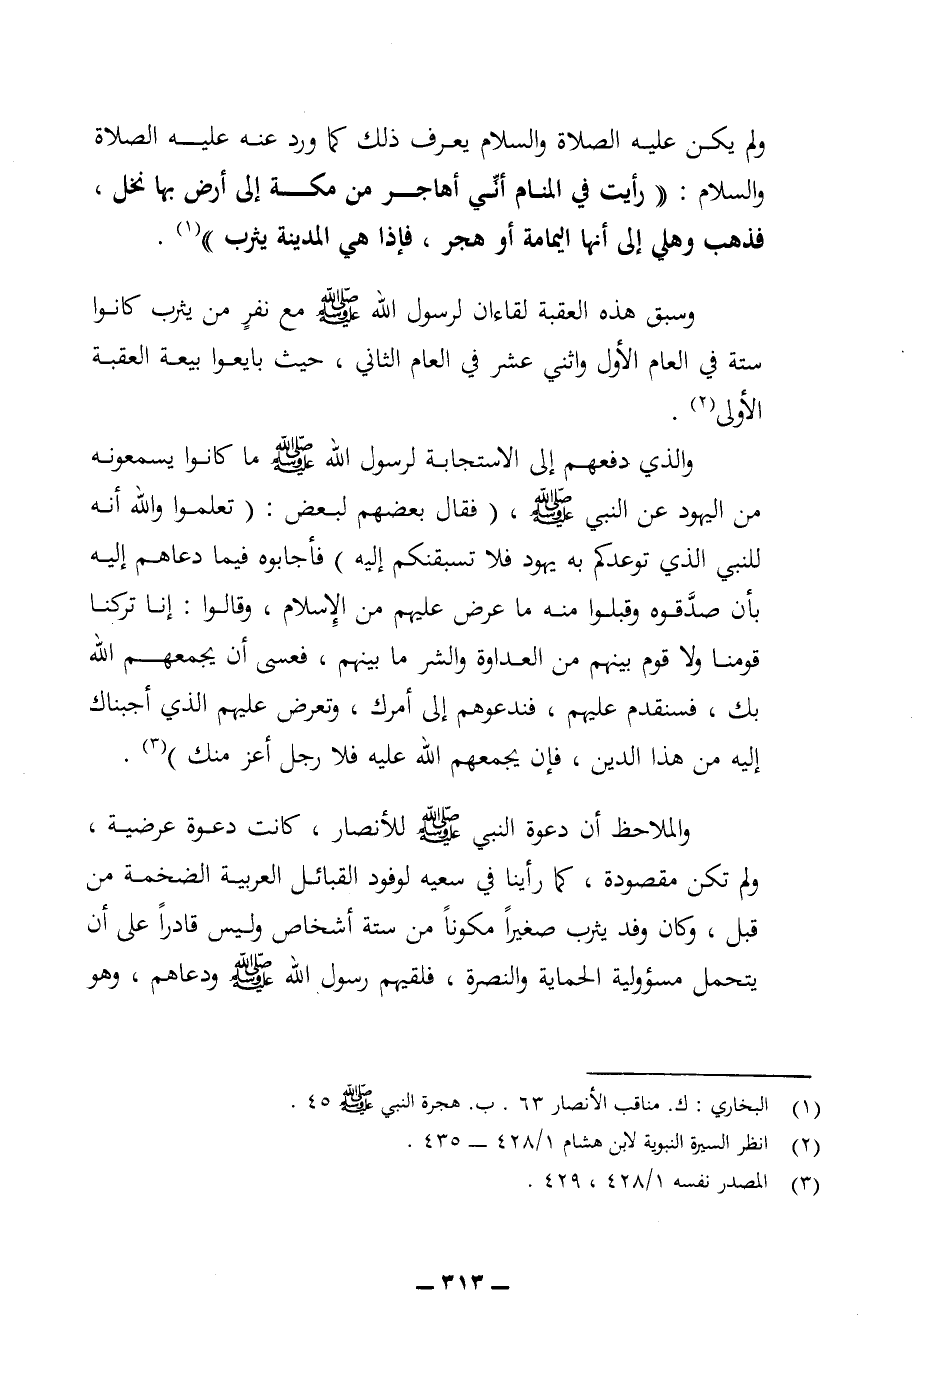 ولم يكن عليه الصلاة والسلام يعرف ذلك كما ورد عنه عليه الصلاة
والسلام : « رأيت في المنام أنّي أهاجر من مكة إلى أرض بها نخل ،
فذهب وهلي إلى أنها اليمامة أو هجر ، فإذا هي المدينة يثرب »(١) .
وسبق هذه العقبة لقاءان لرسول الله ﷺ مع نفرٍ من يثرب كانوا
ستة في العام الأول واثني عشر في العام الثاني ، حيث بايعوا بيعة العقبة
الأولى(٢) .
والذي دفعهم إلى الاستجابة لرسول الله ﷺ ما كانوا يسمعونه
من اليهود عن النبي ﷺ ، ( فقال بعضهم لبعض : ( تعلموا والله أنه
للنبي الذي توعدكم به يهود فلا تسبقنكم إليه ) فأجابوه فيما دعاهم إليه
بأن صدَّقوه وقبلوا منه ما عرض عليهم من الإسلام ، وقالوا : إنا تركنا
قومنا ولا قوم بينهم من العداوة والشر ما بينهم ، فعسى أن يجمعهم الله
بك ، فسنقدم عليهم ، فندعوهم إلى أمرك ، وتعرض عليهم الذي أجبناك
إليه من هذا الدين ، فإن يجمعهم الله عليه فلا رجل أعز منك )(٣) .
والملاحظ أن دعوة النبي ﷺ للأنصار ، كانت دعوة عرضية ،
ولم تكن مقصودة ، كما رأينا في سعيه لوفود القبائل العربية الضخمة من
قبل ، وكان وفد يثرب صغيراً مكوناً من ستة أشخاص وليس قادراً على أن
يتحمل مسؤولية الحماية والنصرة ، فلقيهم رسول الله ﷺ ودعاهم ، وهو
(١) البخاري : ك. مناقب الأنصار ٦٣ . ب. هجرة النبي ﷺ ٤٥ .
(٢) انظر السيرة النبوية لابن هشام ٤٢٨/١ ــ ٤٣٥ .
(٣) المصدر نفسه ٤٢٨/١ ، ٤٢٩ .
ــ ٣١٣ ــ